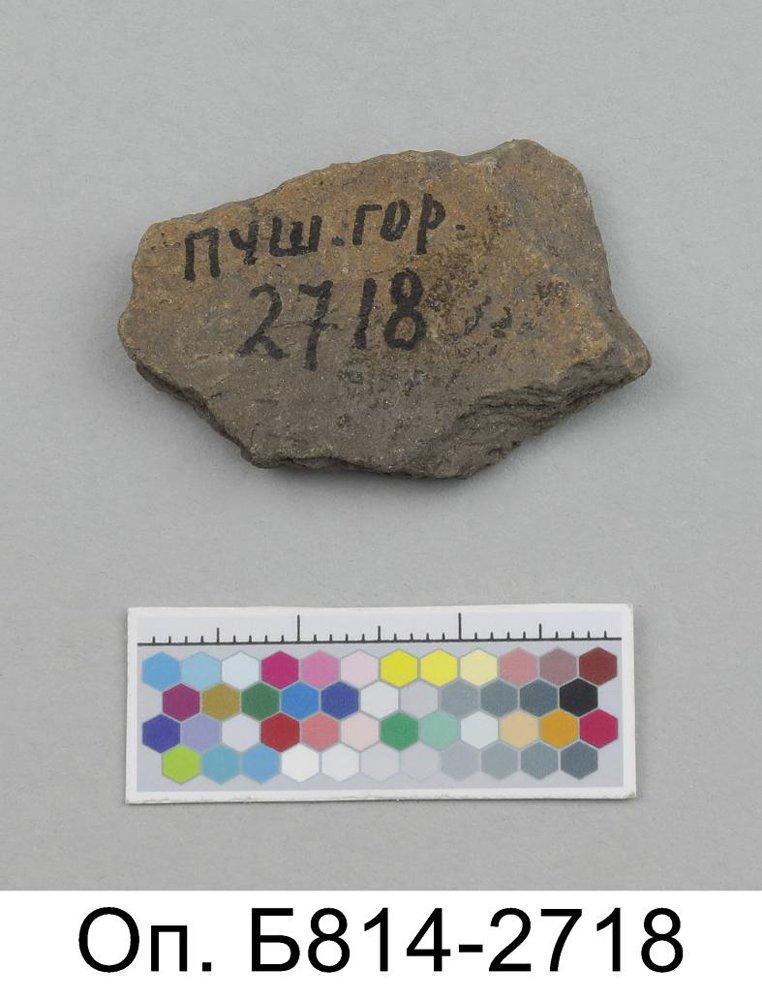 ПУШ.ГОР.
2718
Оп. Б814-2718